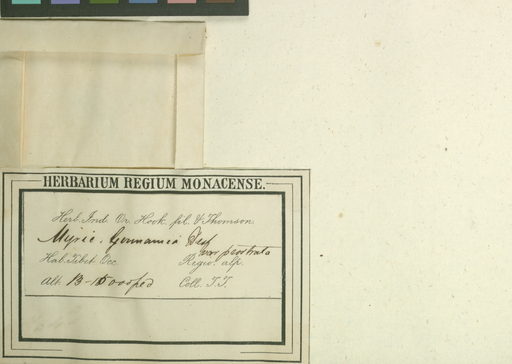 HERBARIUM REGIUM MONACENSE.
Herb. Ind. Or. Hook. fil. & Thomson.
Myric. Germanica Desf
var prostrata
Hab. Tibet. Occ. Regio. alp.
Alt. 13-15000 ped Coll. T.T.